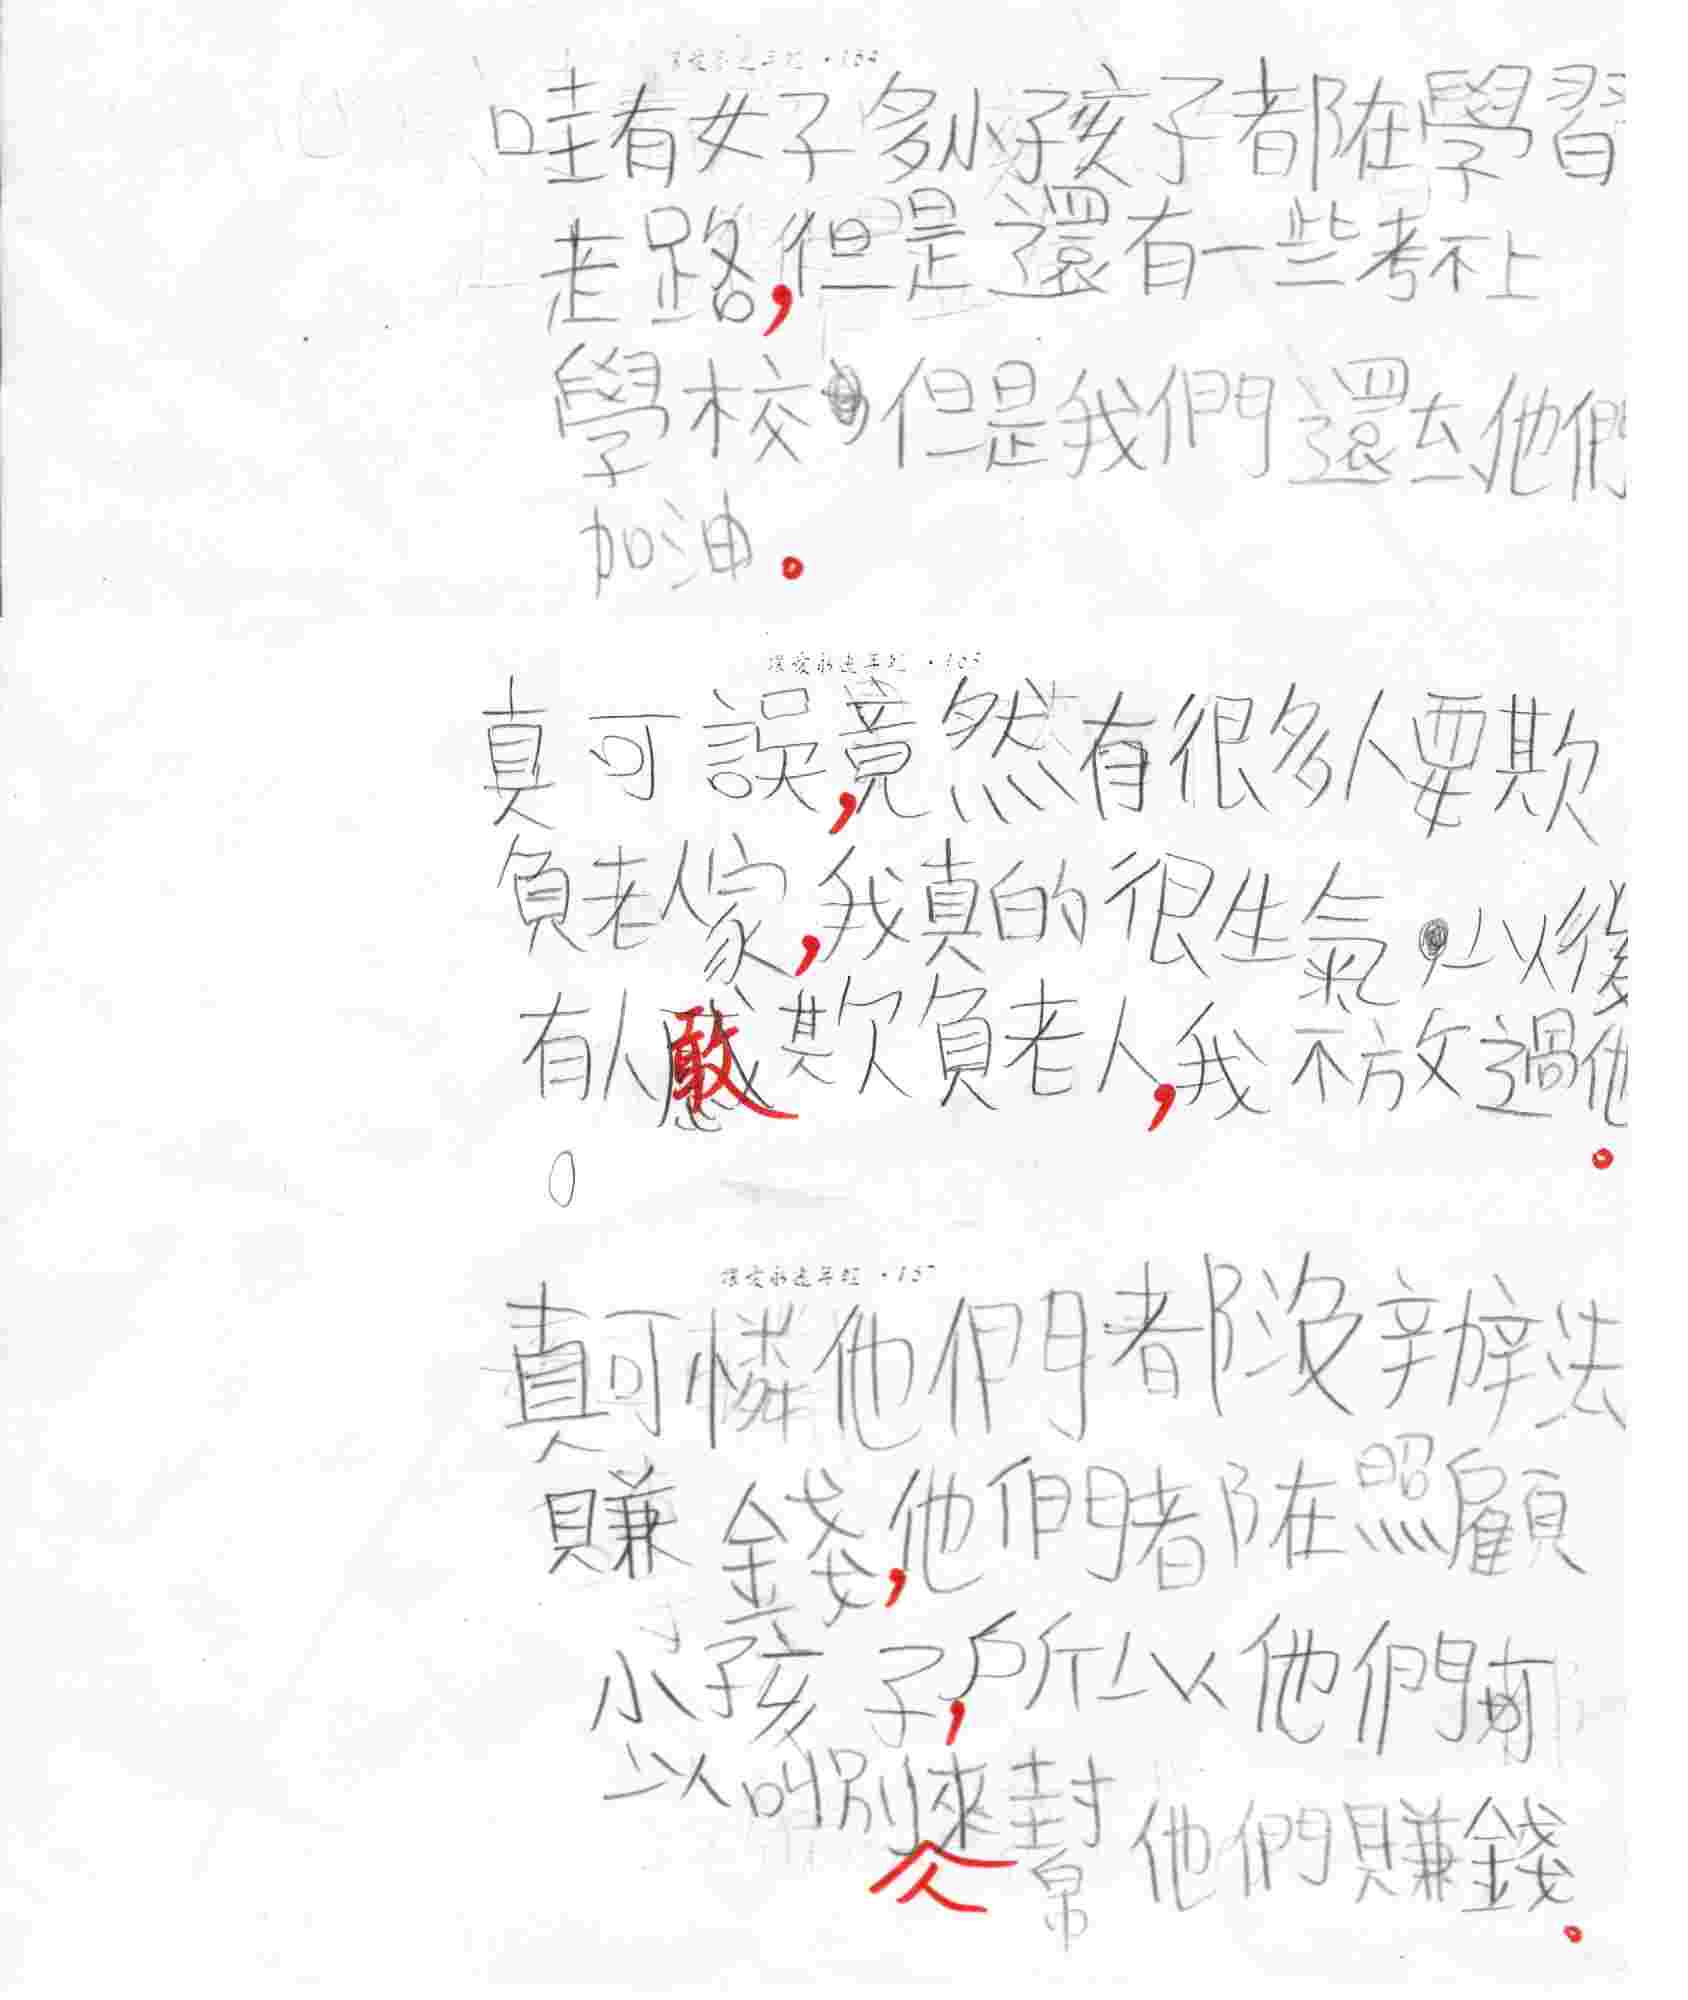 讓愛永遠年輕 · 164
哇有好多小孩子都在學習
走路,但是還有一些考不上
學校,但是我們還去他們
加油。
讓愛永遠年輕 · 165
真可誤,竟然有很多人要欺
負老人家,我真的很生氣,以後
有人敢欺負老人,我不放過他。
讓愛永遠年輕 · 167
真可憐他們都沒辦法
賺錢,他們都在照顧
小孩子,所以他們可
以叫別人來幫他們賺錢。